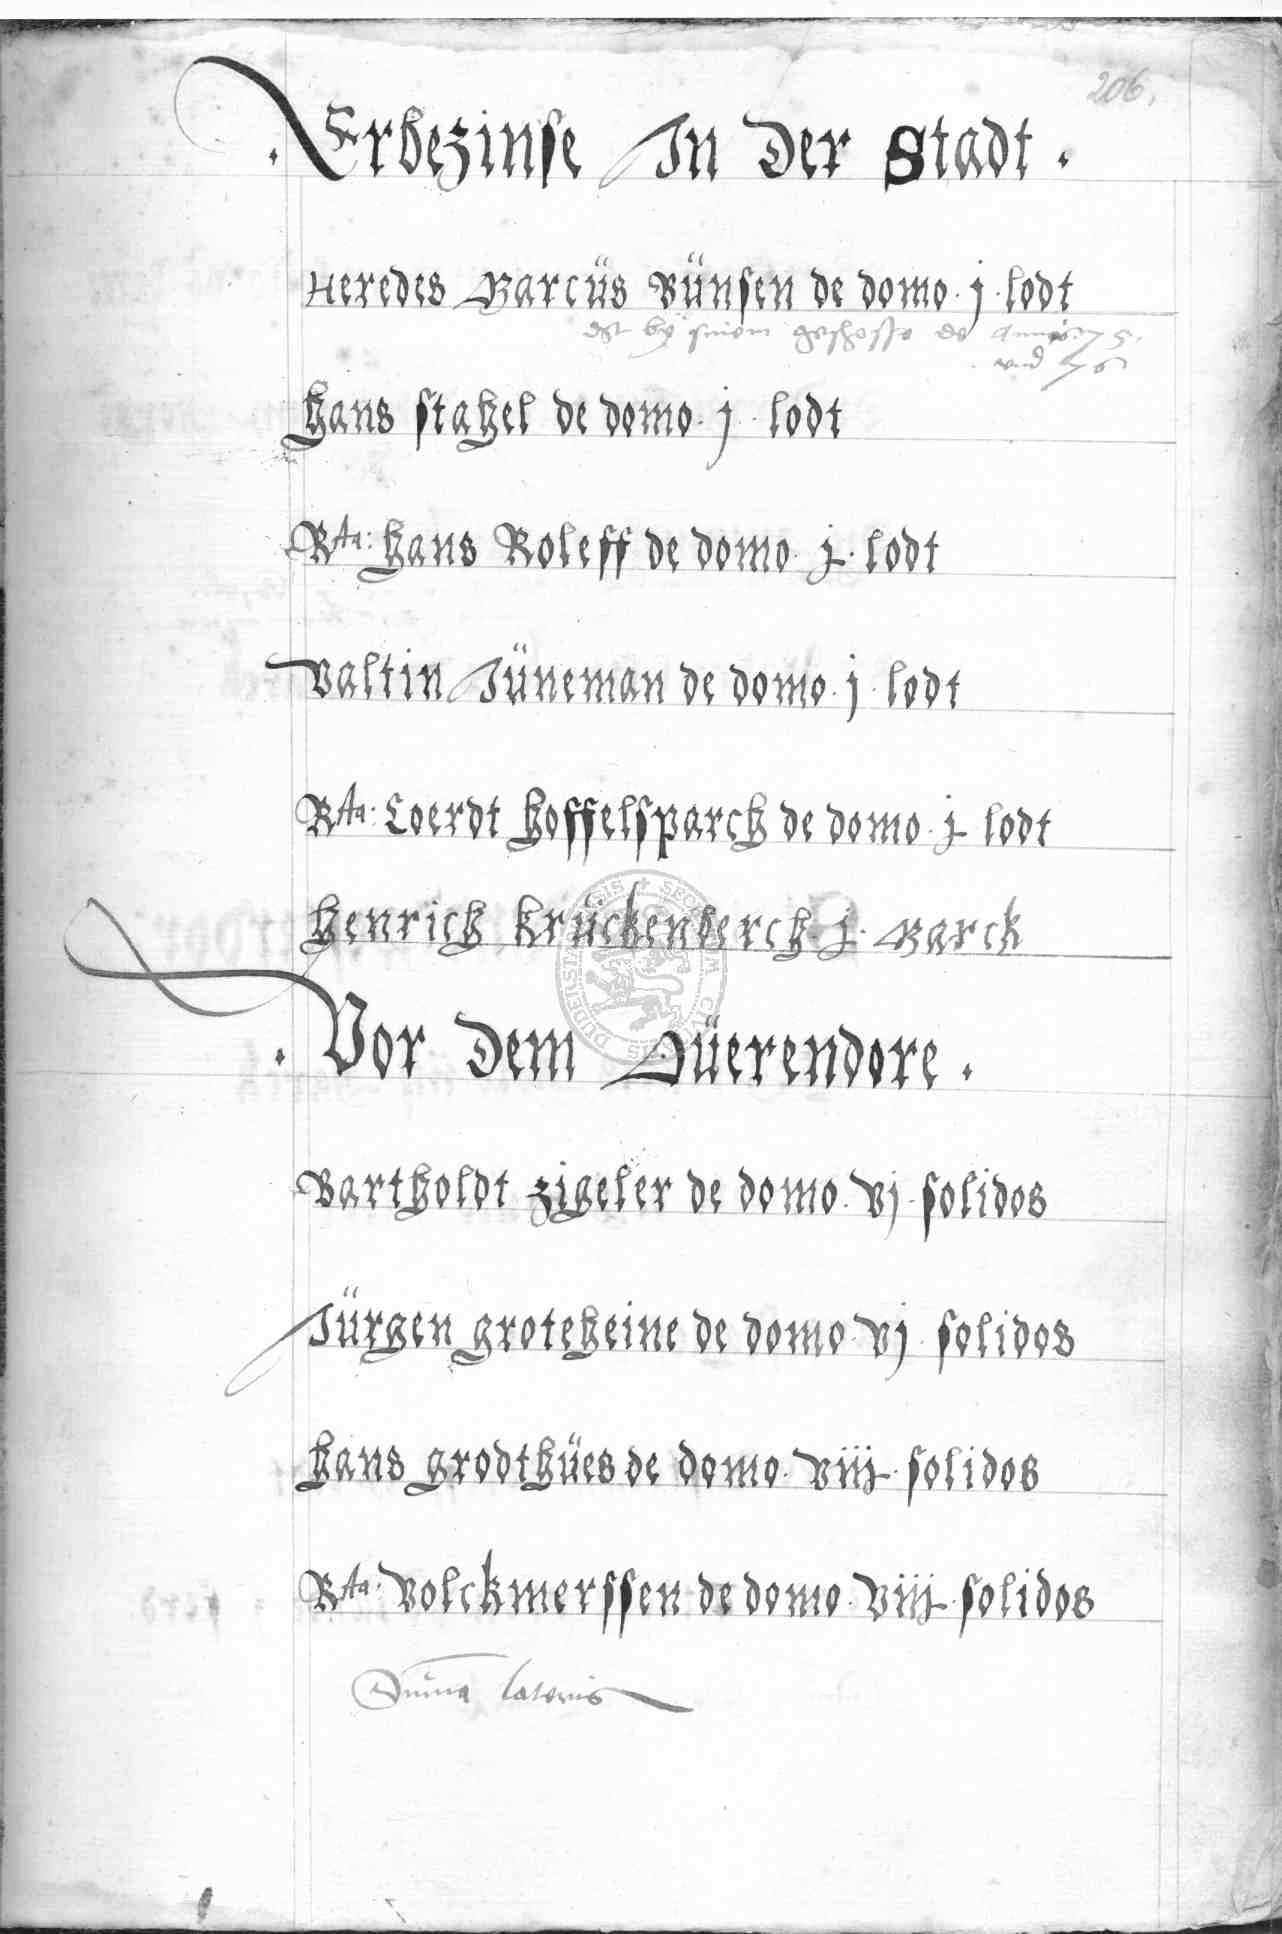 206.
. Erbezinse In Der Stadt .
Heredes Marcüs Bünsen de domo · j · lodt
dt by sinem geschosse de Annis 75.
vnd 76
Hans stahel de domo · j · lodt
Rta: Hans Roleff de domo · j · lodt
Valtin Jüneman de domo · j · lodt
Rta· Coerdt Hoffelsparch de domo · j · lodt
Henrich Krückenberch · j · Marck
. Vor Dem Süerendore .
Bartholdt zigeler de domo · vj · solidos
Jürgen groteheine de domo · vj · solidos
Hans grodthües de domo · viij · solidos
Rta· Volckmerssen de domo · viij · solidos
Suma lateris